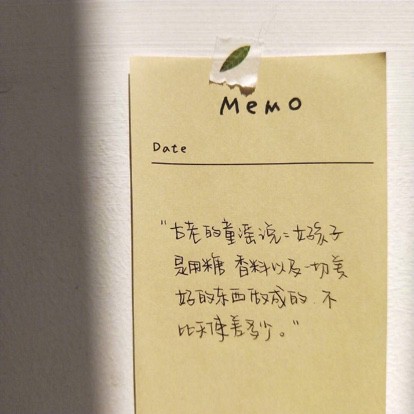 MEMO
Date
"古老的童谣说：好孩子
是用糖 香料以及一切美
好的东西做成的 不
比天使差多少。"